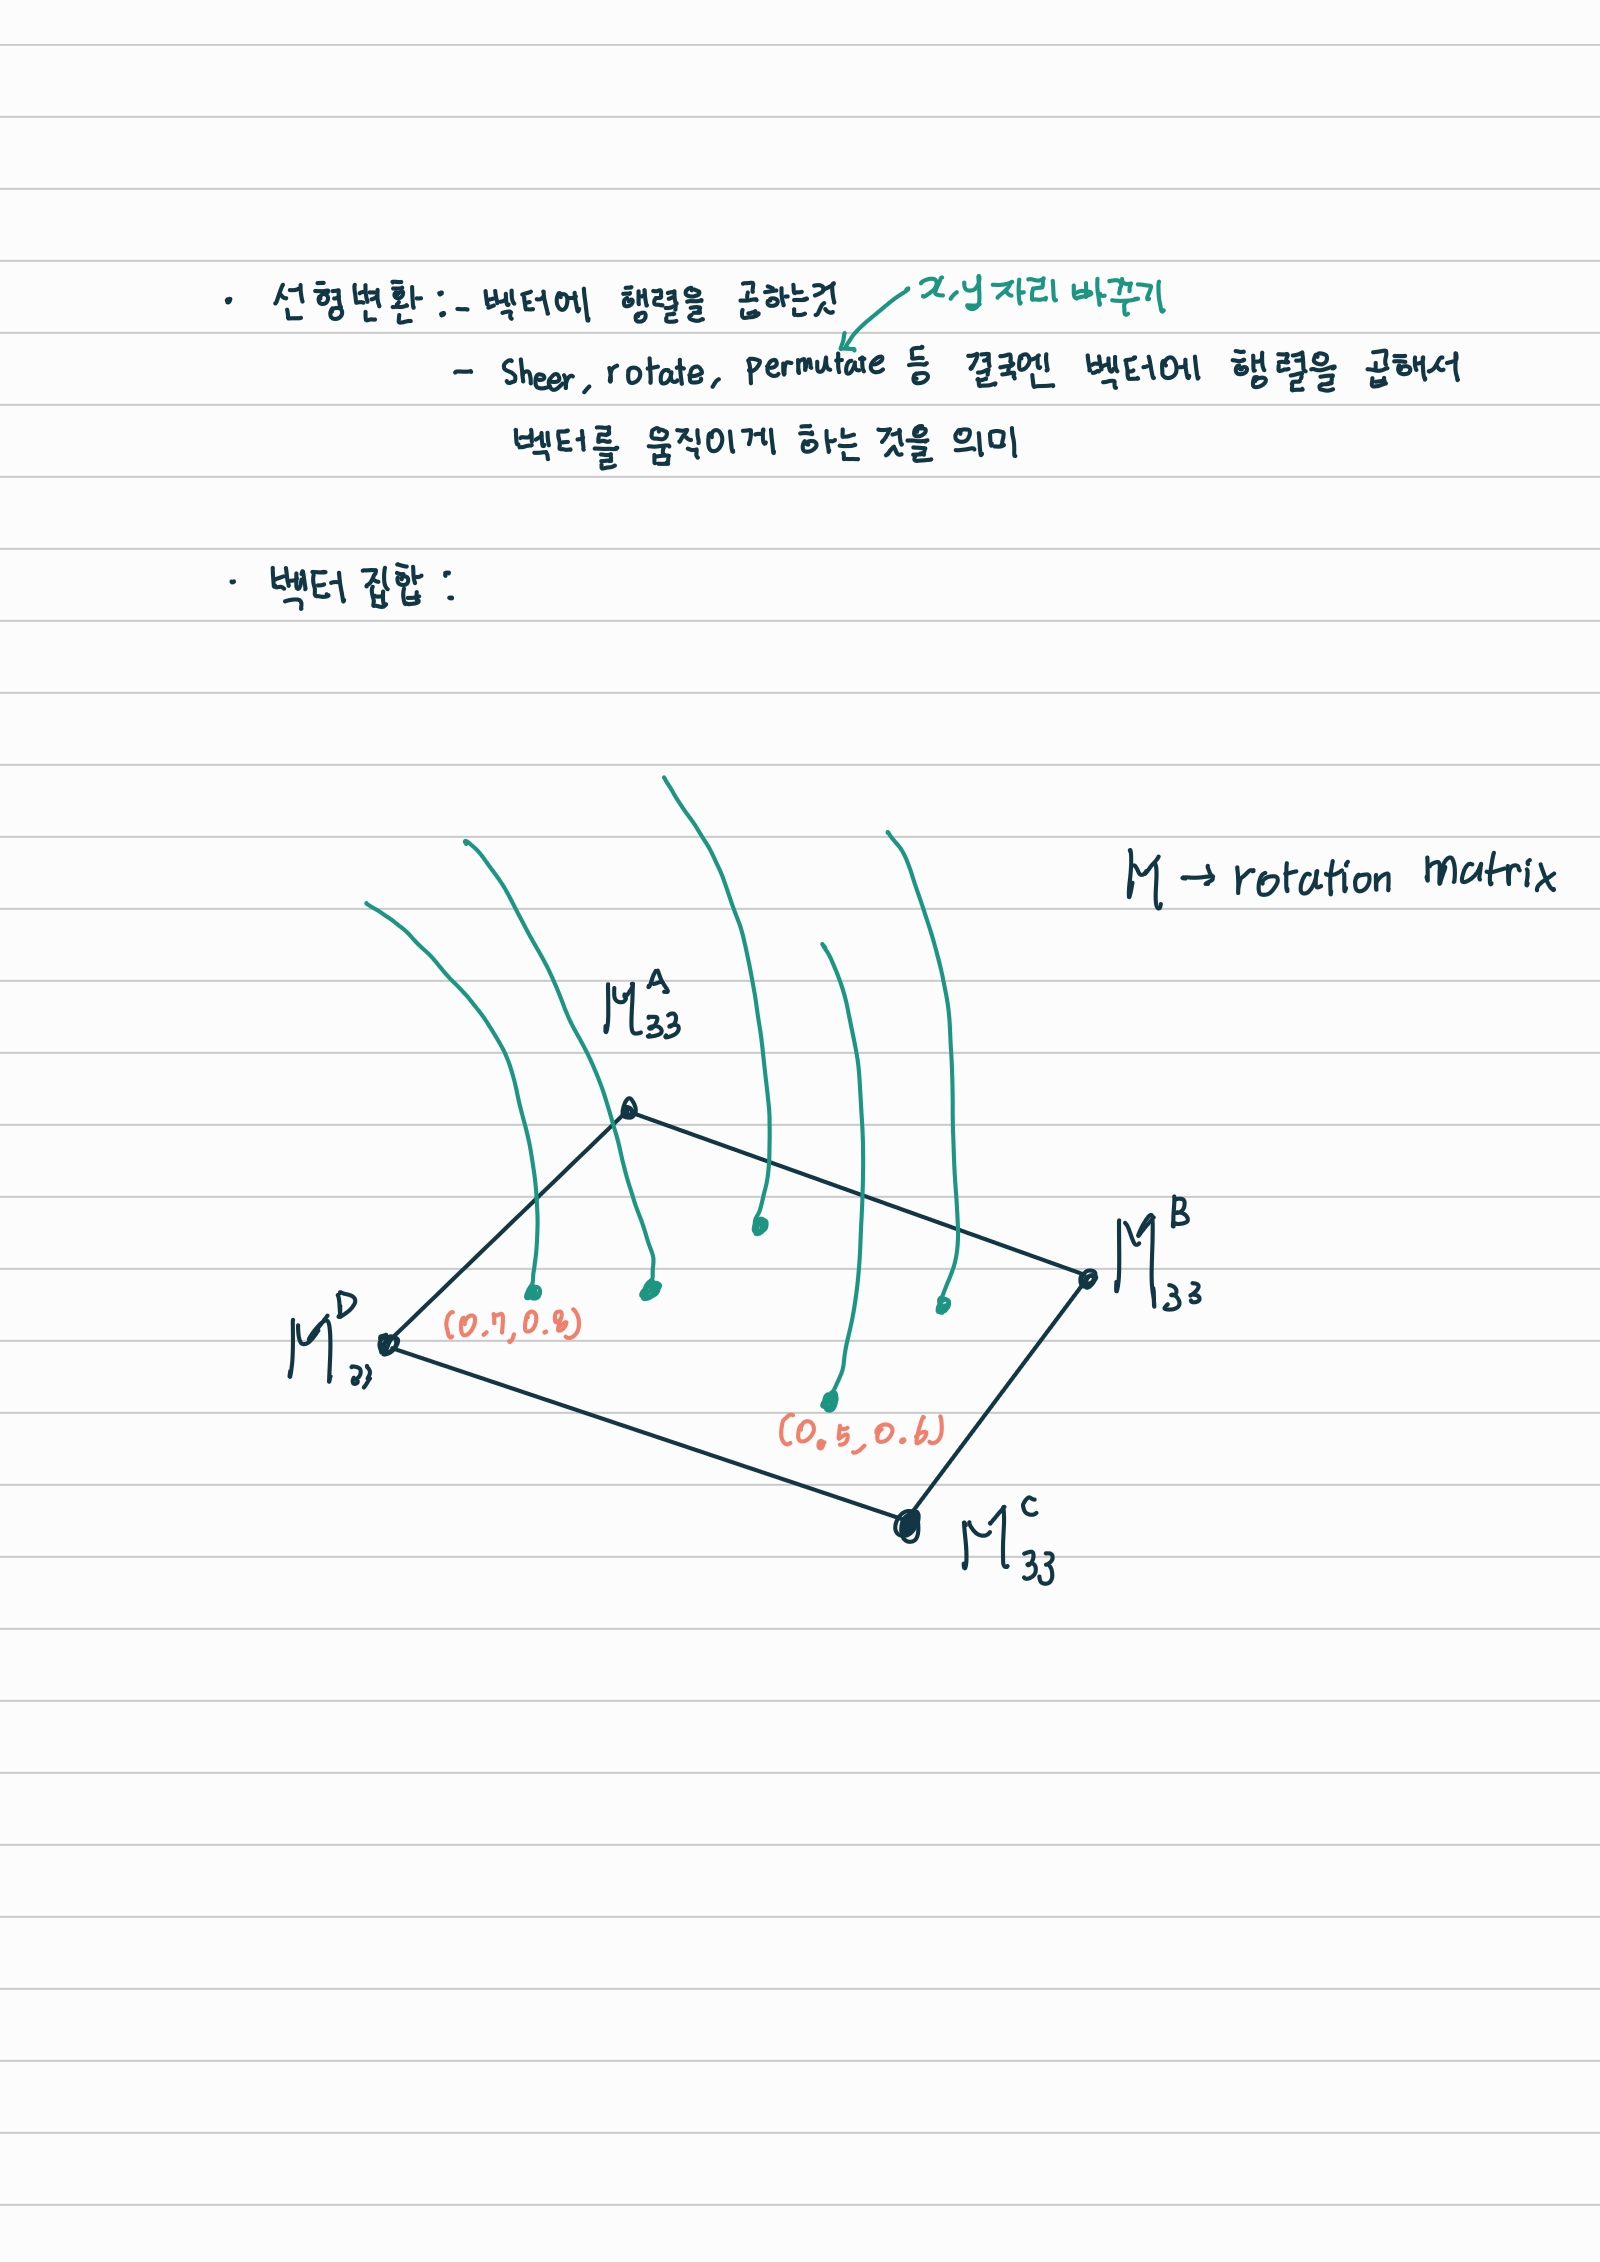 · 선형변환 : - 벡터에 행렬을 곱하는것
x, y 자리 바꾸기
- Sheer, rotate, permutate 등 결국엔 벡터에 행렬을 곱해서
벡터를 움직이게 하는 것을 의미
· 벡터 집합 :
M → rotation matrix
M^A_33
M^B_33
M^D_33
(0.7, 0.8)
(0.5, 0.6)
M^C_33